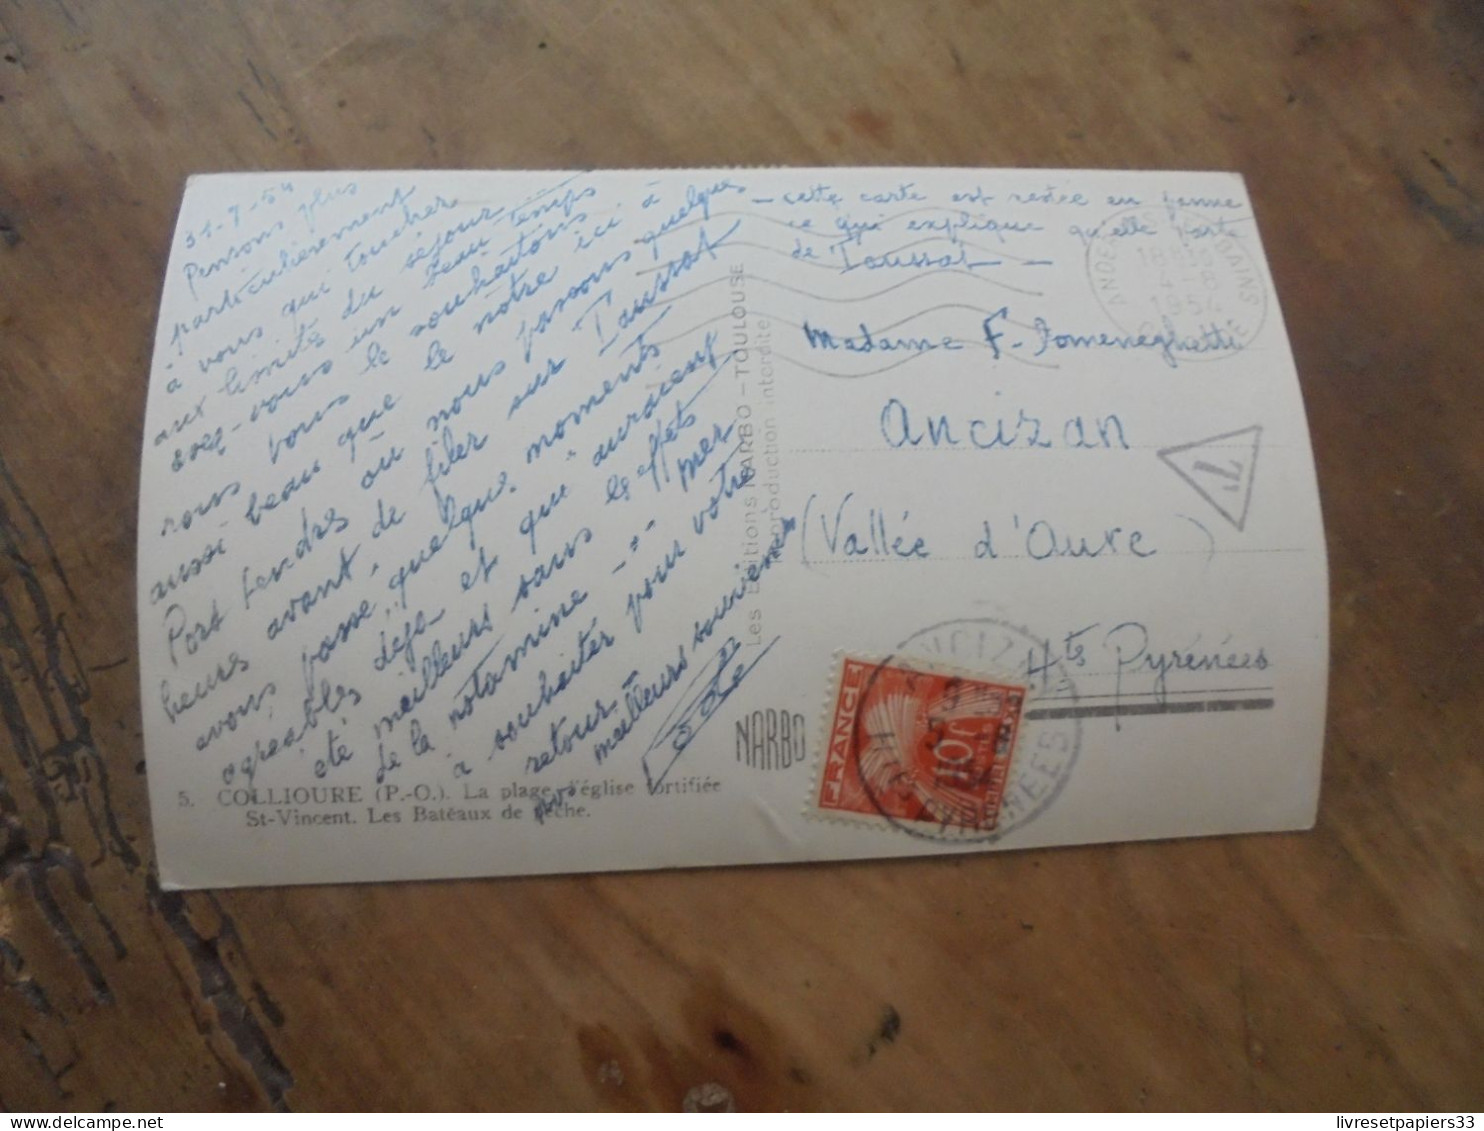 31-7-54
Pensons plus
particulièrement
à vous qui toucher
aux limites du séjour
avez-vous un beau temps
nous vous le souhaitons
aussi beau que le nôtre ici à
Port Vendres où nous passons quelques
heures avant de filer sur Taussat
avons passé quelque moments
agréables déjà et qui auraient
été meilleurs sans les effets
de la notamine --- mer
à souhaiter pour votre
retour
meilleurs souvenirs
5. COLLIOURE (P.-O.). La plage l'église fortifiée
St-Vincent. Les Batêaux de pêche.
Les Editions NARBO - TOULOUSE
Reproduction interdite
NARBO
- cette carte est restée en panne
ce qui explique qu'elle parte
de Toussat -
ANDERNOS LES BAINS
18H
4-8
1954
GIRONDE
Madame F. Domeneghetti
Ancizan
(Vallée d'Aure)
Htes Pyrénées
T
FRANCE
10F
ANCIZAN
HTES PYRENEES
livresetpapiers33